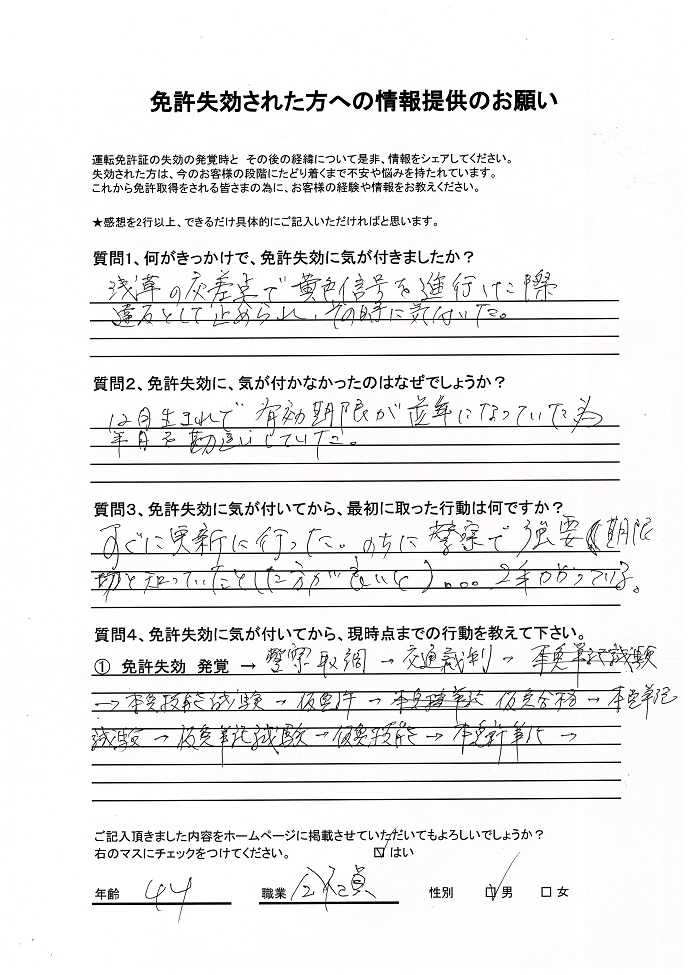 免許失効された方への情報提供のお願い
運転免許証の失効の発覚時と その後の経緯について是非、情報をシェアしてください。
失効された方は、今のお客様の段階にたどり着くまで不安や悩みを持たれています。
これから免許取得をされる皆さまの為に、お客様の経験や情報をお教えください。
★感想を2行以上、できるだけ具体的にご記入いただければと思います。
質問1、何がきっかけで、免許失効に気が付きましたか？
浅草の交差点で黄色信号を進行した際
違反として止められ、その時に気付いた。
質問2、免許失効に、気が付かなかったのはなぜでしょうか？
12月生まれで有効期限が翌年になっていた為
年月を勘違いしていた。
質問3、免許失効に気が付いてから、最初に取った行動は何ですか？
すぐに更新に行った。のちに警察で強要（期限
切と知っていたとした方が良いと）。。。2年かかっている。
質問4、免許失効に気が付いてから、現時点までの行動を教えて下さい。
① 免許失効 発覚 → 警察取調 → 交通裁判 → 本免筆記試験
→ 本免技能試験 → 仮免許 → 仮免合格 → 本免筆記
試験 → 仮免筆記試験 → 仮免技能 → 筆記 →
ご記入頂きました内容をホームページに掲載させていただいてもよろしいでしょうか？
右のマスにチェックをつけてください。 ☑ はい
年齢 44 職業 会社員 性別 ☑ 男 □ 女